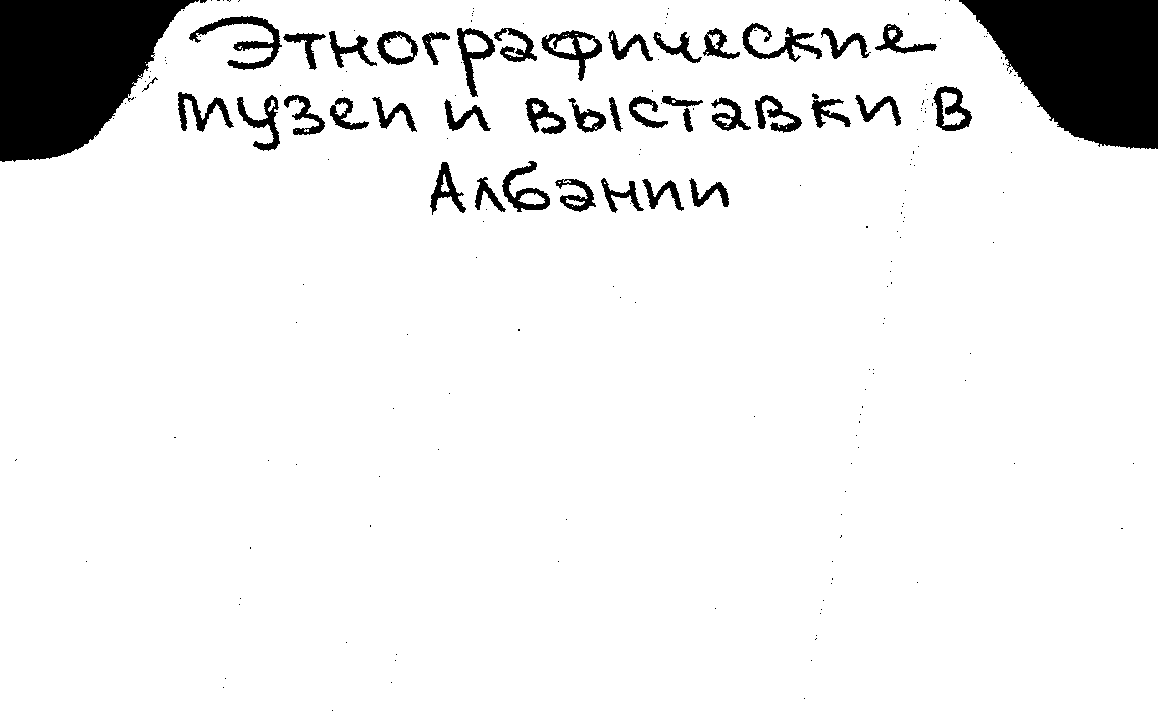 Этнографические
музеи и выставки в
Албании